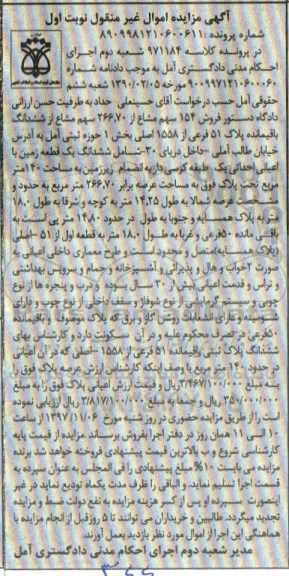 آگهی مزایده اموال غیر منقول نوبت اول
شماره پرونده: ۸۹۰۹۹۸۱۲۱۰۶۰۰۶۱۱
در پرونده کلاسه ۹۷۱۱۸۴ شعبه دوم اجرای
احکام مدنی دادگستری آمل به موجب دادنامه شماره
۹۰۰۹۹۷۱۲۱۰۶۰۰۶۰ مورخه ۱۳۹۰/۰۲/۰۵ شعبه ششم
حقوقی آمل حسب درخواست آقای حسینعلی حداد به طرفیت حسن ارزانی
دادگاه دستور فروش ۱۵۴ سهم مشاع از ۲۶۶,۷۰ سهم مشاع از ششدانگ
باقیمانده پلاک ۵۱ فرعی از ۱۵۵۸ اصلی بخش ۱ حوزه ثبتی آمل به آدرس
خیابان طالب آملی -داخل دریای ۳۰-شامل ششدانگ یک قطعه زمین با
اعیانی احداثی یک طبقه کرسی دار به انضمام زیرزمین به مساحت ۱۴۰متر
مربع تحت پلاک فوق به مساحت عرصه برابر ۲۶۶,۷۰ متر مربع به حدود و
مشخصات عرصه شمالا به طول ۱۴,۲۵ متر به کوچه و شرقا به طول ۱۸,۰۰
متر به پلاک همسایه و جنوبا به طول در حدود ۱۴,۸۰ متر پی است به
باقی مانده ۵۰فرعی و غربا به طول ۱۸,۰۰ متر به قطعه اول از ۵۱ -اصلی
(پلاک همسایه)متصل و محدود است و طرح معماری داخلی اعیانی به
صورت ۲خواب و هال و پذیرائی و آشپزخانه و حمام و سرویس بهداشتی
و تراس و قدمت اعیانی بیش از ۳۰ سال بوده و درب و پنجره ها از نوع
چوبی و سیستم گرمایشی از نوع شوفاژ و سقف داخلی از نوع چوب و دارای
شومینه و دارای انشعابات روشن گاز و برق که پلاک موصوف و باقیمانده
۵۰فرعی در تصرف محکوم علیه و در آن سکونت دارد و کارشناس بهای
ششدانگ پلاک ثبتی باقیمانده ۵۱ فرعی از ۱۵۵۸ -اصلی که در آن اعیانی
در حدود ۱۴۰ متر مربع با وصف اینکه کارشناس ارزش عرصه پلاک فوق را
به مبلغ ۳/۴۶۷/۱۰۰/۰۰۰ریال و قیمت ارزش اعیانی پلاک فوق را به مبلغ
۳۵۰/۰۰۰/۰۰۰ ریال و جمعا به مبلغ ۳/۸۱۷/۱۰۰/۰۰۰ ریال ارزیابی نموده
است را از طریق مزایده حضوری در روز شنبه مورخ ۱۳۹۷/۱۱/۰۶ از ساعت
۱۰ الی ۱۱ همان روز در دفتر اجرا بفروش برساند .مزایده از قیمت پایه
کارشناسی شروع و به بالاترین قیمت پیشنهادی فروخته خواهد شد برنده
مزایده می بایست ۱۰% مبلغ پیشنهادی را فی المجلس به عنوان سپرده به
قسمت اجرا تسلیم نماید و الباقی را ظرف مدت یکماه تودیع نماید در غیر
اینصورت سپرده او پس از کسر هزینه مزایده به نفع دولت ضبط و مزایده
تجدید میگردد. طالبین و خریداران می توانند تا ۵ روزقبل از انجام مزایده با
هماهنگی این اجرا از اموال مورد نظر بازدید بعمل آورند
مدیر شعبه دوم اجرای احکام مدنی دادگستری آمل
۳۴۴